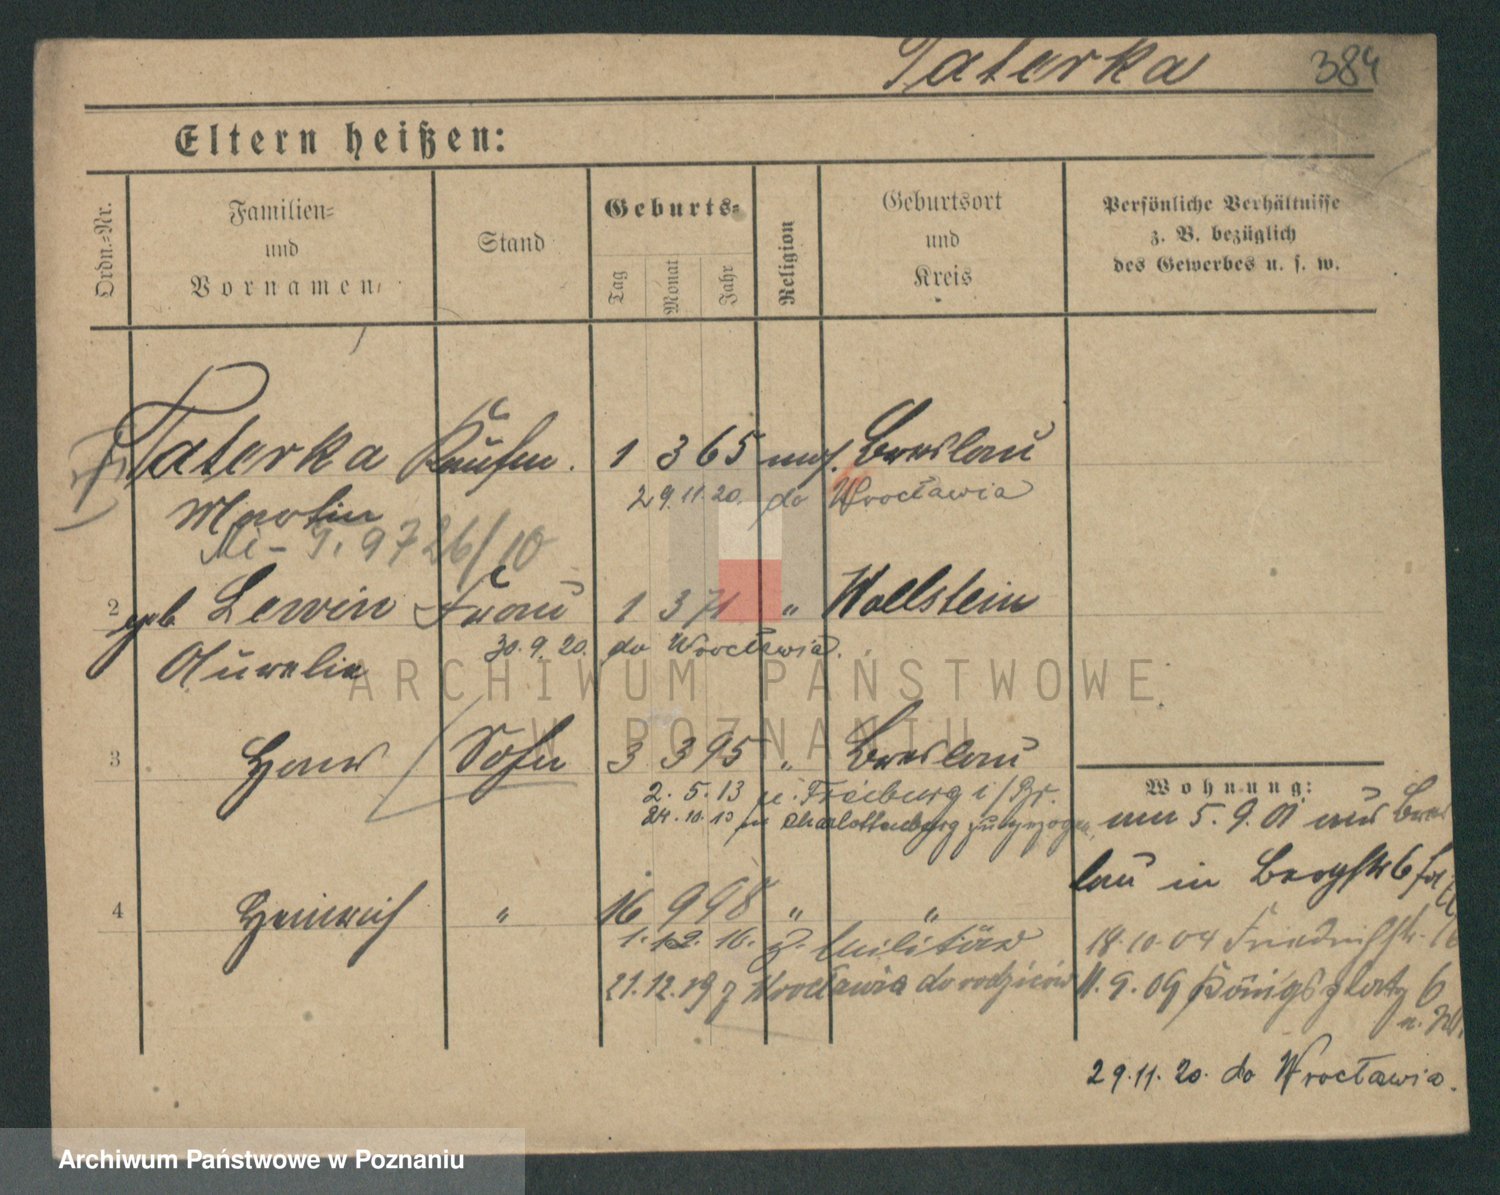 Taterka 384
Eltern heißen:
Ordn.-Nr.
Familien-
und
Vornamen
Stand
Geburts-
Tag
Monat
Jahr
Religion
Geburtsort
und
Kreis
Persönliche Verhältnisse
z. B. bezüglich
des Gewerbes u. s. w.
Taterka Kaufm. 1 3 65 mos. Breslau
29.11.20. do Wrocławia
Martin
9726/10
2 geb Lewin Frau 1 3 71 " Wollstein
30.9.20. do Wrocławia.
Aurelie
3 Hans Sohn 3 3 95 " Breslau
2. 5. 13 n. Freiburg i/Br.
24.10.13 von Charlottenburg zugezogen
4 Heinrich " 16 9 98 " "
1. 12. 16. z. Militär
21.12.19 z Wrocławia do rodziców
Wohnung:
am 5. 9. 01 aus Bres
lau in Bergstr 6
18.10.04 Friedrichstr.
11.9.09 Königsplatz 6
29.11.20. do Wrocławia.
ARCHIWUM PAŃSTWOWE
W POZNANIU
Archiwum Państwowe w Poznaniu